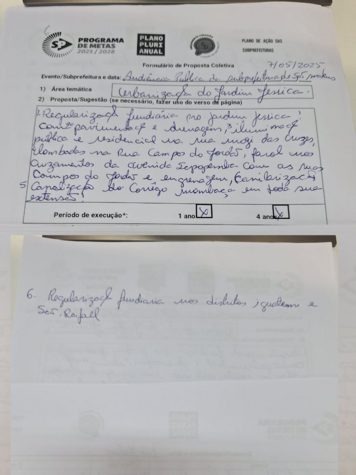 PROGRAMA
DE METAS
2025 / 2028
PLANO
PLURI
ANUAL
PLANO DE AÇÃO DAS
SUBPREFEITURAS
Formulário de Proposta Coletiva
7/05/2025
Evento/Subprefeitura e data: Audiência Pública da subprefeitura de São
1) Área temática Urbanização do Jardim Jessica.
2) Proposta/Sugestão (se necessário, fazer uso do verso da página)
Regularização fundiária no Jardim Jessica,
com pavimentação e drenagem, iluminação
pública e residencial na rua mogi das Cruzes,
lombadas na Rua Campos do Jordão, farol nos
cruzamentos da avenida Sapopemba com as ruas
Campos do Jordão e engrenagem, Canalização
5 Canalização do Corrego em toda sua
extensão!
Período de execução*: 1 ano X 4 anos X
6. Regularização fundiária nos distritos iguatemi e
São Rafael